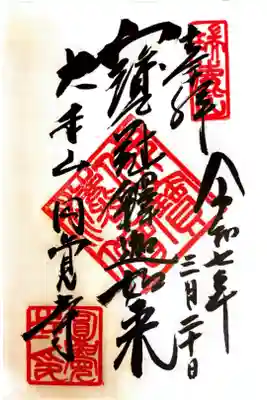 瑞鹿山
奉拝
令和七年
三月二十日
寶冠釋迦如来
大本山円覚寺